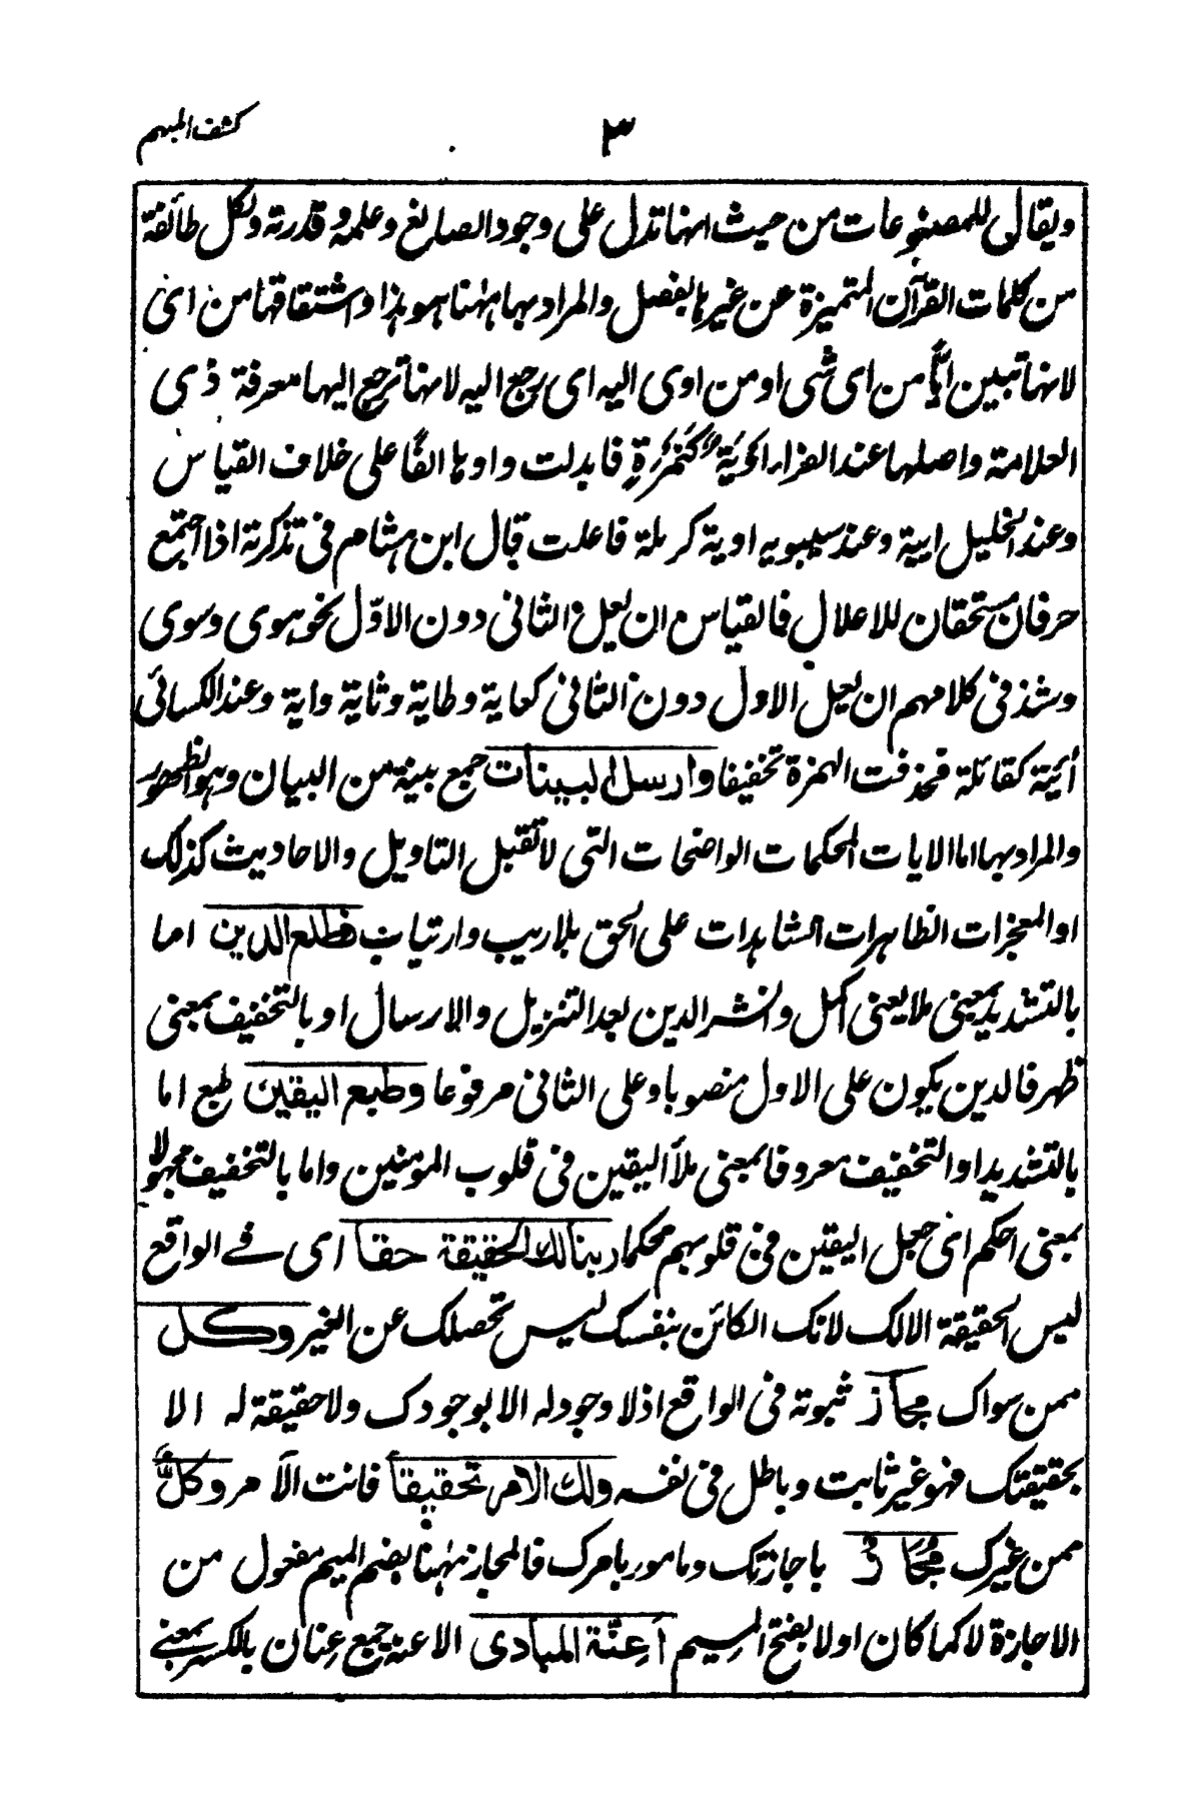 كشف المبهم
٣
ويقال للمصنوعات من حيث انها تدل على وجود الصانع وعلمه وقدرته ولكل طائفة
من كلمات القرآن المتميزة عن غيرها بفصل والمراد بها ههنا هو هذا واشتقاقها من اى
لانها تبين ايًّا من اى شى او من اوى اليه اى رجع اليه لانها ترجع اليها معرفة ذى
العلامة واصلها عند الفراء اَوَيَة كَثَمَرَةٍ فابدلت واوها الفًا على خلاف القياس
وعند الخليل ايية وعند سيبويه اوية كرملة فاعلت قال ابن هشام فى تذكرته اذا اجتمع
حرفان مستحقان للاعلال فالقياس ان يعل الثانى دون الاوّل نحو هوى وسوى
وشذ فى كلامهم ان يعل الاول دون الثانى كغاية وطاية وثاية واية وعند الكسائى
أئية كقائلة فحذفت الهمزة تخفيفا وارسل البينات جمع بينة من البيان وهو الظهور
والمراد بها اما الايات المحكمات الواضحات التى لا تقبل التاويل والاحاديث كذلك
او المعجزات الظاهرات الشاهدات على الحق بلا ريب وارتياب فطلع الدين اما
بالتشديد بمعنى ملا يعنى اكمل ونشر الدين بعد التنزيل والارسال او بالتخفيف بمعنى
ظهر فالدين يكون على الاول منصوبا وعلى الثانى مرفوعا وطبع اليقين طبع اما
بالتشديد او التخفيف معروفا بمعنى ملأ اليقين فى قلوب المؤمنين واما بالتخفيف مجهولا
بمعنى احكم اى جعل اليقين فى قلوبهم محكما ربنا لك الحقيقة حقا اى فے الواقع
ليس الحقيقة الا لك لانك الكائن بنفسك ليس تحصلك عن الغير وكل
ممن سواك مجاز ثبوته فى الواقع اذ لا وجود له الا بوجودك ولا حقيقة له الا
بحقيقتك فهو غير ثابت وباطل فى نفسه ولك الامر تحقيقا فانت الآمر وكلٌّ
ممن غيرك مُجَازٌ باجازتك ومامور بامرك فالمجاز ههنا بضم الميم مفعول من
الاجازة لا كما كان اولا بفتح الميم اَعِنّة المبادى الاعنة جمع عِنان بالكسر بمعنے